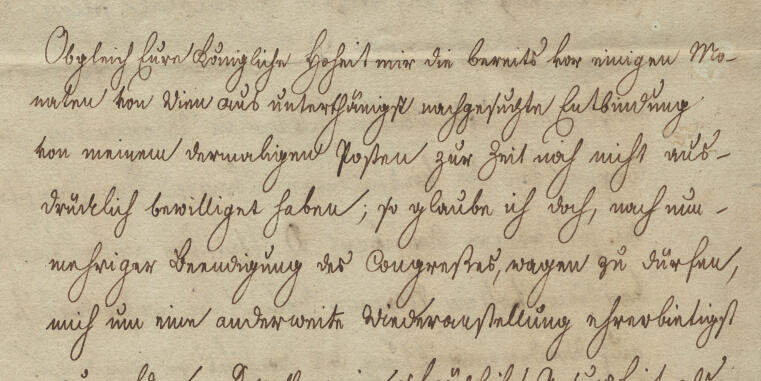 Obgleich Eure Königliche Hoheit mir die bereits vor einigen Mo-
naten von Wien aus unterthänigst nachgesuchte Entbindung
von meinem dermaligen Posten zur Zeit noch nicht aus-
drücklich bewilliget haben; so glaube ich doch, nach nun-
mehriger Beendigung des Congreßes, wagen zu dürfen,
mich um eine anderweite Wiederanstellung ehrerbietigst